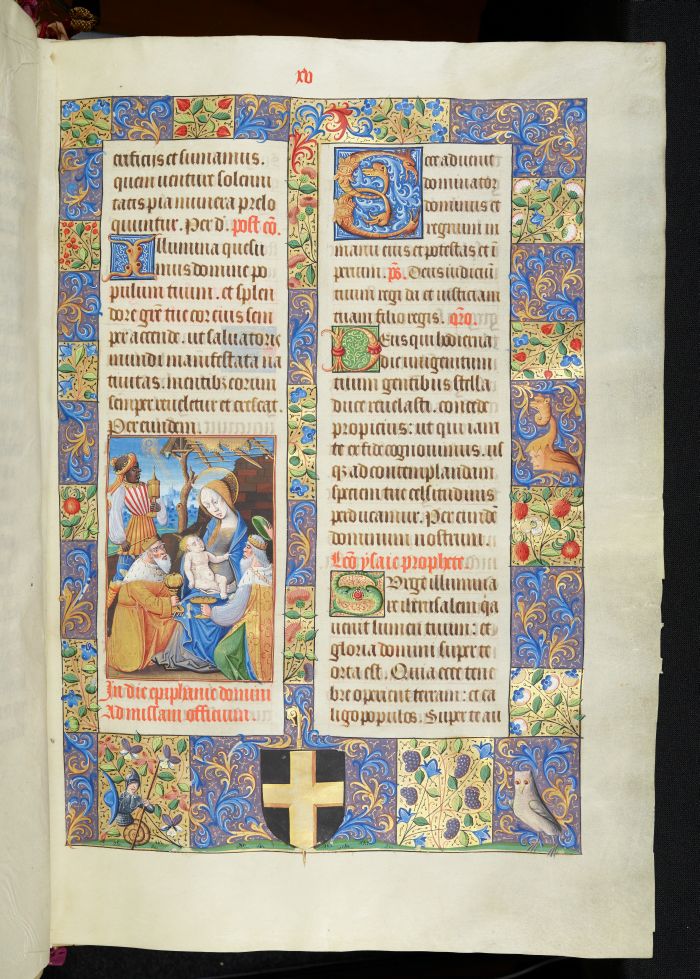 xv
erficiis et sumamus.
quem uentur solenni
tatis pia munera prelo
quuntur. Per d. post co.
Illumina quesu
mus domine po
pulum tuum. et splen
dore gre tue cor eius sem
per accende. ut saluatoris
mundi manifestata na
tiuitas. mentibz eorum
semper reueletur et crescat.
Per eundem.
In die epiphanie domini
Ad missam officium
Ecce aduenit
dominator
dominus et
regnum in
manu eius et potestas et i
perium. ps. Deus iudiciu
tuum regi da et iusticiam
tuam filio regis. oro.
Deus qui hodierna
die unigenitum
tuum gentibus stella
duce reuelasti. concede
propicius: ut qui iam
te ex fide cognouimus. us
qz ad contemplandam
speciem tue celsitudinis
perducamur. Per eunde
dominum nostrum.
Leco ysaie prophete
Surge illumina
re iherusalem qa
uenit lumen tuum: et
gloria domini super te
orta est. Quia ecce tene
bre operient terram: et ca
ligo populos. Super te au